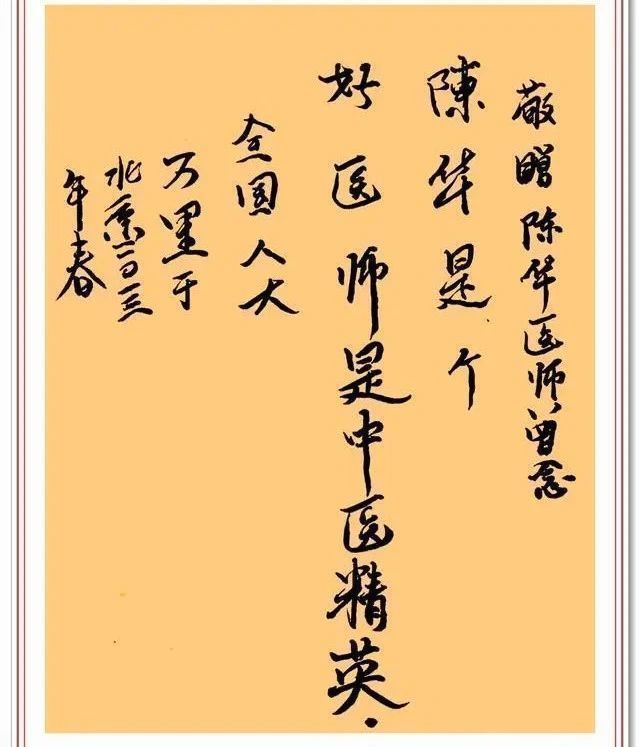 敬赠陈华医师留念
陳华是个
好医师是中医精英.
全国人大
万里于
北京二〇一三
年春